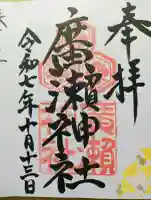 奉拝
廣瀬神社
令和七年十月十三日